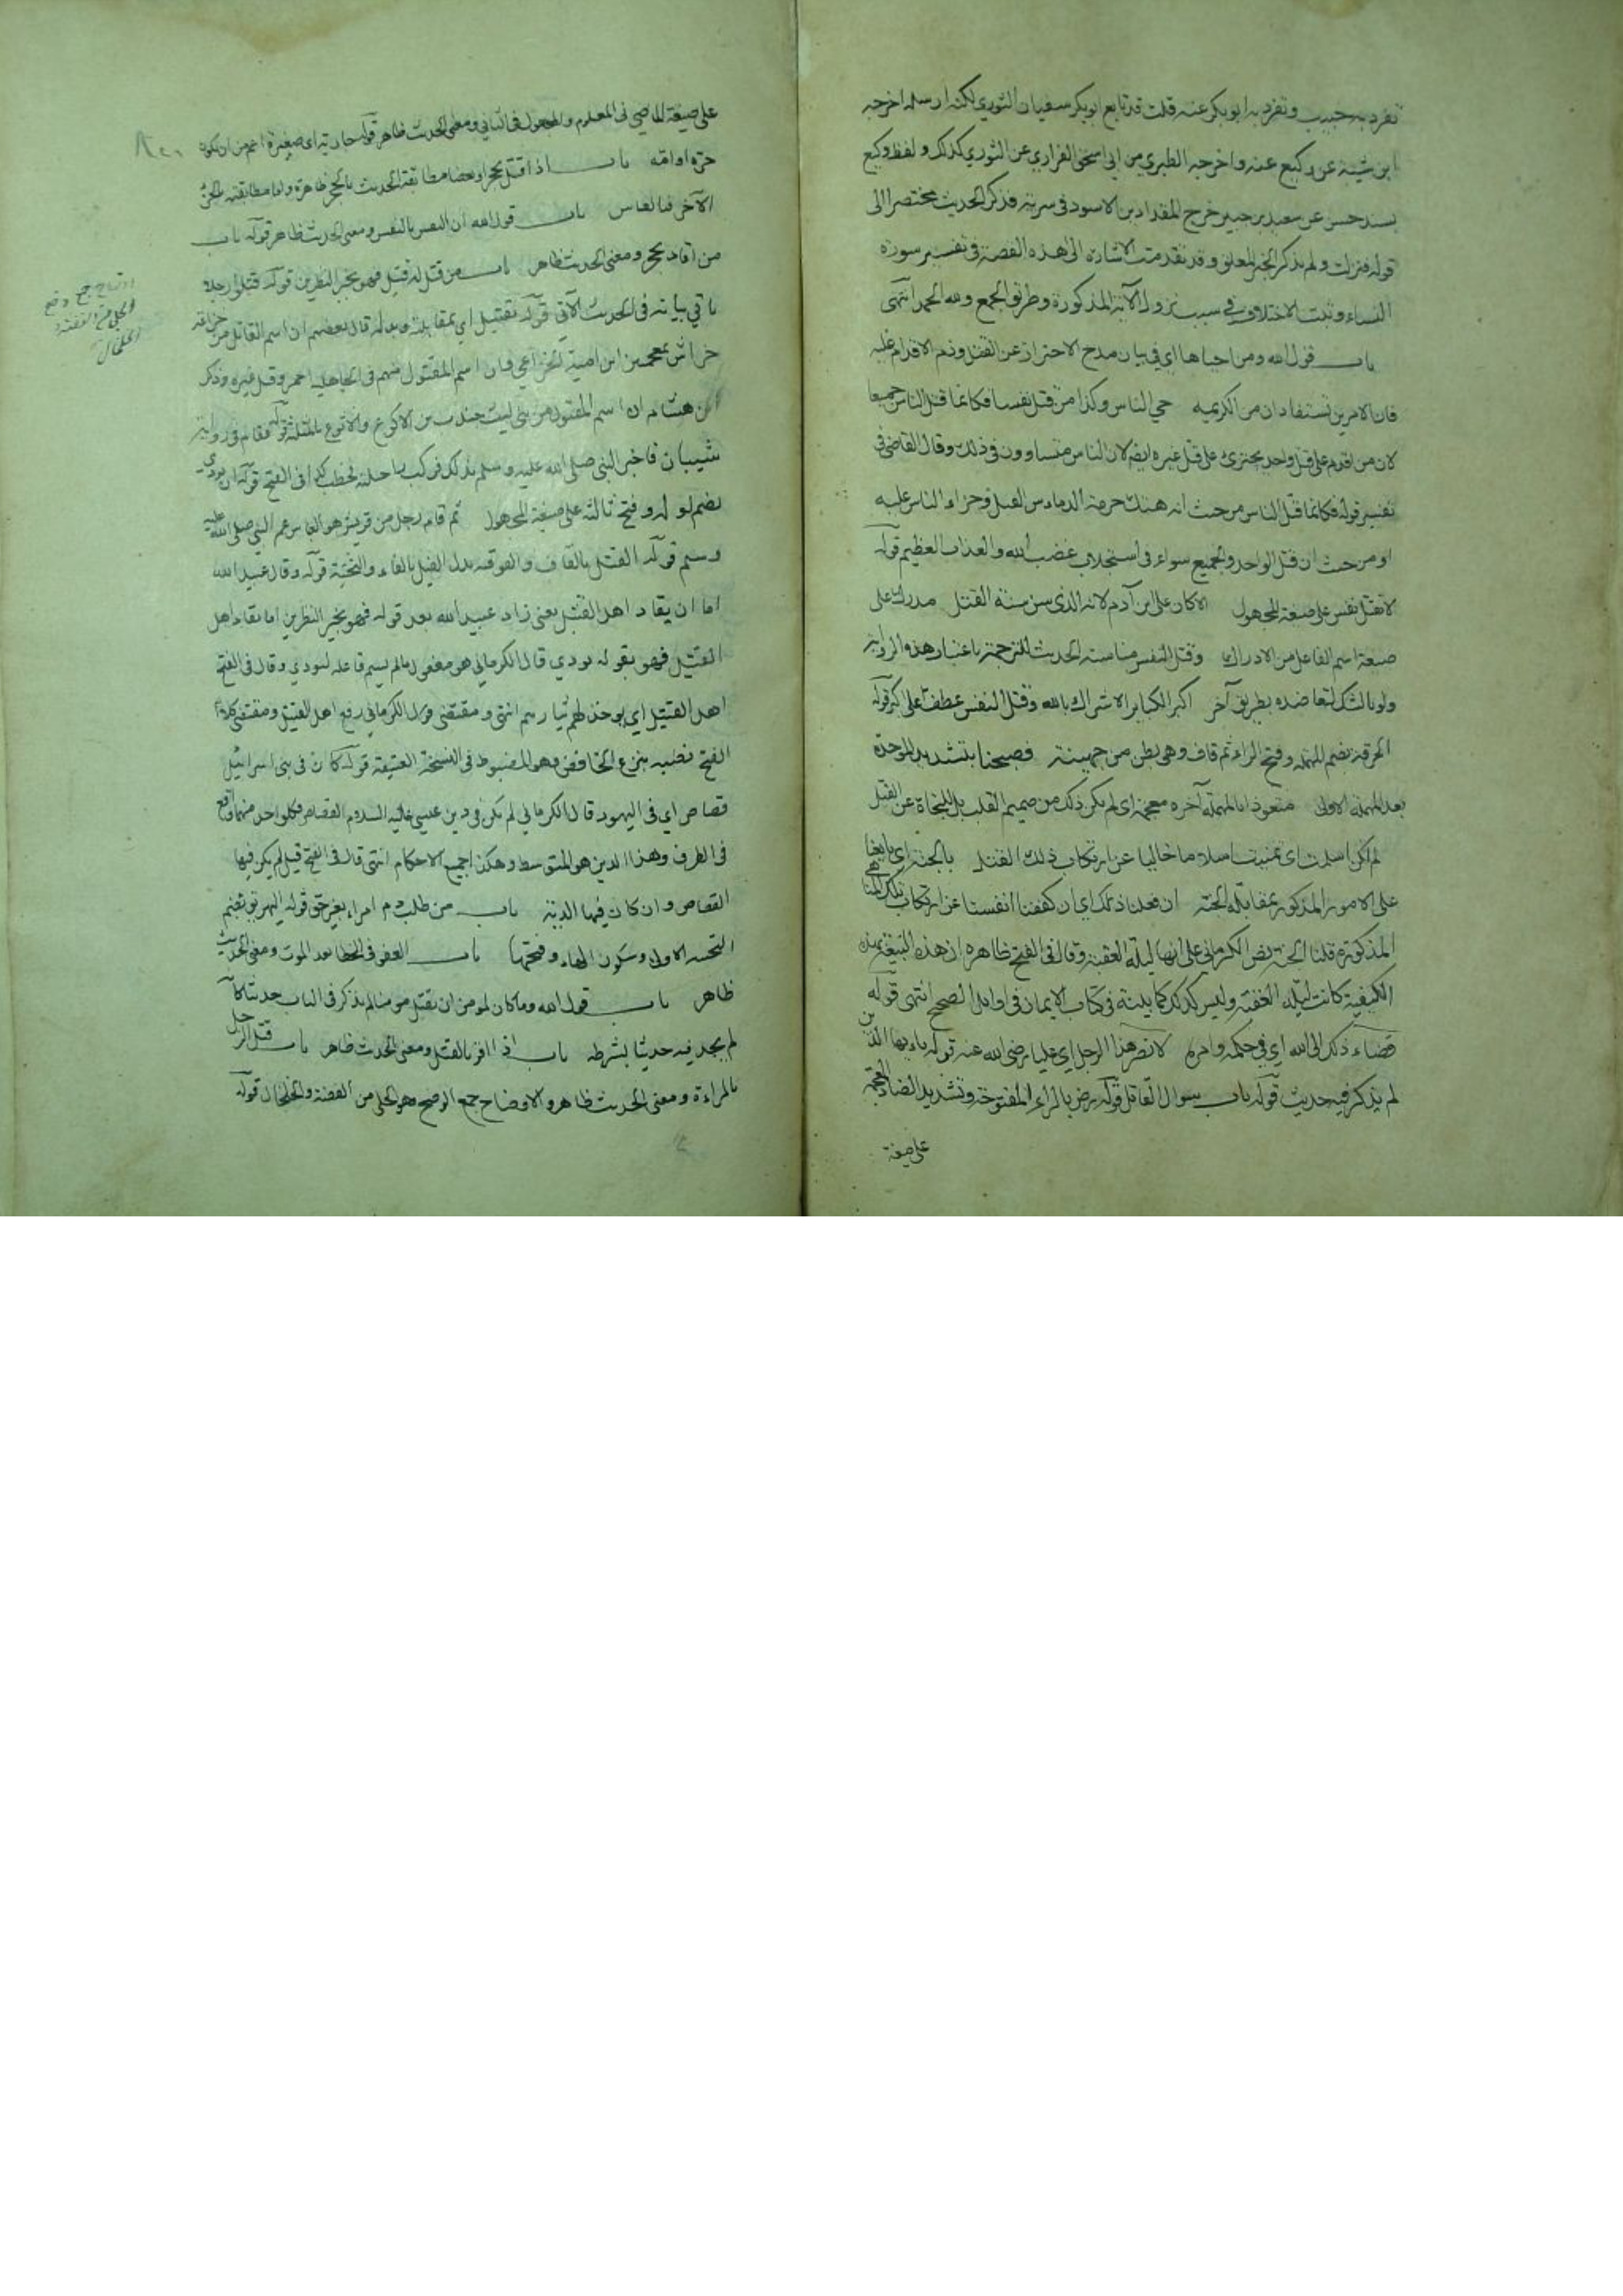 تفرد به حبيب وتفرد به ابو بكر عنه قلت قد تابع ابو بكر سفيان الثوري لكنه ارسله اخرجه
ابن شيبة عن وكيع عنه واخرجه الطبري من ابي اسحق الفزاري عن الثوري كذلك ولفظ وكيع
بسند حسن عن سعيد بن جبير خرج المقداد بن الاسود في سرية فذكر الحديث مختصرا الى
قوله فنزلت ولم يذكر الخبر المعلق وقد تقدمت الاشارة الى هذه القصة في تفسير سورة
النساء وثبت الاختلاف في سبب نزول الآية المذكورة وطريق الجمع ولله الحمد انتهى
باب قول الله ومن احياها اي في بيان مدح الاحتراز عن القتل وذم الاقدام عليه
فان الامرين تستفادان من الكريمة حي الناس وكذا من قتل نفسا فكانما قتل الناس جميعا
لان من اقدم على قتل واحد يجترئ على قتل غيره ايضا لان الناس متساوون في ذلك وقال القاضي في
تفسير قوله فكانما قتل الناس من حيث انه هتك حرمة الدماء وسن القتل وجراء الناس عليه
او من حيث ان قتل الواحد والجميع سواء في استجلاب غضب الله والعذاب العظيم قوله
لا تقتل نفس على صيغة المجهول الا كان على ابن آدم لانه الذي سن سنة القتل مدرك على
صيغة اسم الفاعل من الادراك وقتل النفس مناسبته الحديث للترجمة باعتبار هذه الرواية
ولو بالشك لتعاضده بطريق آخر اكبر الكبائر الاشراك بالله وقتل النفس عطف على اكبر قوله
الحرقة بضم المهملة وفتح الراء ثم قاف وهي بطن من جهينة فصبحنا بتشديد الموحدة
بعد المهملة الاولى متعوذا بالمهملة آخره معجمة اي لم يكن ذلك من صميم القلب بل للنجاة عن القتل
لم اكن اسلمت اي تمنيت اسلاما خاليا عن ارتكاب ذلك القتل بالجنة اي بايعنا
على الامور المذكورة بمقابلة الجنة ان فعلنا ذلك اي ان كففنا انفسنا عن ارتكاب تلك المناهي
المذكورة قلنا الجنة نص الكرماني على انها ليلة العقبة وقال في الفتح ظاهره ان هذه البيعة بهذه
الكيفية كانت ليلة العقبة وليس كذلك كما بينته في كتاب الايمان في اوايل الصحيح انتهى قوله
قضاء ذلك الى الله اي في حكمه وامره لانصر هذا الرجل اي عليا رضي الله عنه قوله باب يايها الذين
لم يذكر فيه حديث قوله باب سوال القاتل قوله رض بالراء المفتوحة وتشديد الضاد المعجمة
على صيغة
على صيغة الماضي في المعلوم والمجهول في الثاني ومعنى الحديث ظاهر قوله جارية اي صغيرة اعم من ان تكون
حرة او امة باب اذا قتل بحجر او بعصا مطابقة الحديث بالحجر ظاهرة واما مطابقته للجزء
الآخر فبالقياس باب قول الله ان النفس بالنفس ومعنى الحديث ظاهر قوله باب
من اقاد بحجر ومعنى الحديث ظاهر باب من قتل له قتيل فهو بخير النظرين قوله قتلوا رجلا
ياتي بيانه في الحديث الآتي قوله بقتيل اي بمقابلة وبدله قال بعضهم ان اسم القاتل من خزاعة
خراش بمعجمتين ابن امية الخزاعي وان اسم المقتول منهم في الجاهلية احمر وقيل غيره وذكر
ابن هشام ان اسم المقتول من بني ليث جندب بن الاكوع والاقوع بالمثلثة قوله فقام في رواية
شيبان فاخبر النبي صلى الله عليه وسلم بذلك فركب راحلته فخطب كذا في الفتح قوله ان يودي
بضم اوله وفتح ثالثه على صيغة المجهول ثم قام رجل من قريش هو العباس عم النبي صلى الله عليه
وسلم قوله القتل بالقاف والفوقية بدل الفيل بالفاء والتحتية قوله وقال عبيد الله
اما ان يقاد اهل القتيل يعني زاد عبيد الله بعد قوله فهو بخير النظرين اما يقاد اهل
القتيل فهو بقوله يودي قال الكرماني هو مفعول ما لم يسم فاعله ليودي وقال في الفتح
اهل القتيل اي يوخذ لهم ثيارهم انتهى ومقتضى قول الكرماني رفع اهل القتيل ومقتضى كلام
الفتح نصبه بنزع الخافض وهو المضبوط في النسخة العتيقة قوله كان في بني اسرائيل
قصاص اي في اليهود قال الكرماني لم يكن في دين عيسى عليه السلام القصاص فكل واحد منهما واقع
في الطرف وهذا الدين هو المتوسط وهكذا جميع الاحكام انتهى قال في الفتح قيل لم يكن فيها
القصاص وان كان فيها الدية باب من طلب دم امراء بغير حق قوله اليهريق بضم
التحتية الاولى وسكون الهاء وفتحها باب العفو في الخطا بعد الموت ومعنى الحديث
ظاهر باب قول الله وما كان لمومن ان يقتل مومنا لم يذكر في الباب حديثا كانه
لم يجد فيه حديثا بشرطه باب اذا اقر بالقتل ومعنى الحديث ظاهر باب قتل الرجل
بالمراءة ومعنى الحديث ظاهر والاوضاح جمع الوضح وهو الحلي من الفضة والخلخال قوله
اوضاح جمع وضح
الحلي من الفضة و
الخلخال